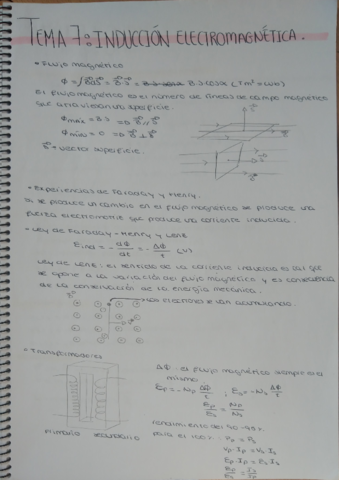 TEMA 7: INDUCCIÓN ELECTROMAGNÉTICA.
• Flujo magnético
El flujo magnético es el número de líneas de campo magnético
que atraviesan una superficie.
Φmáx = B·S => B // S
Φmín = 0 => B ⊥ S
S = vector superficie.
• Experiencias de Faraday y Henry.
Si se produce un cambio en el flujo magnético se produce una
fuerza electromotriz que produce una corriente inducida.
• Ley de Faraday-Henry y Lenz
Eind = - dΦ/dt = - ΔΦ/t (V)
Ley de Lenz: el sentido de la corriente inducida es tal que
se opone a la variación del flujo magnético y es consecuencia
de la conservación de la energía mecánica.
los electrones se van acumulando.
• Transformadores
primario secundario
ΔΦ: el flujo magnético siempre es el
mismo.
Ep = -Np ΔΦ/t ; Es = -Ns ΔΦ/t
Ep/Es = Np/Ns
rendimiento del 90-98%.
para el 100%: Pp = Ps
Vp·Ip = Vs·Is
Ep·Ip = Es·Is
Ep/Es = Is/Ip